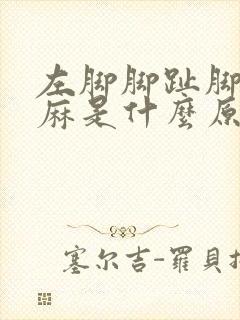 左脚脚趾脚
麻是什麼原
塞尔吉-羅貝托